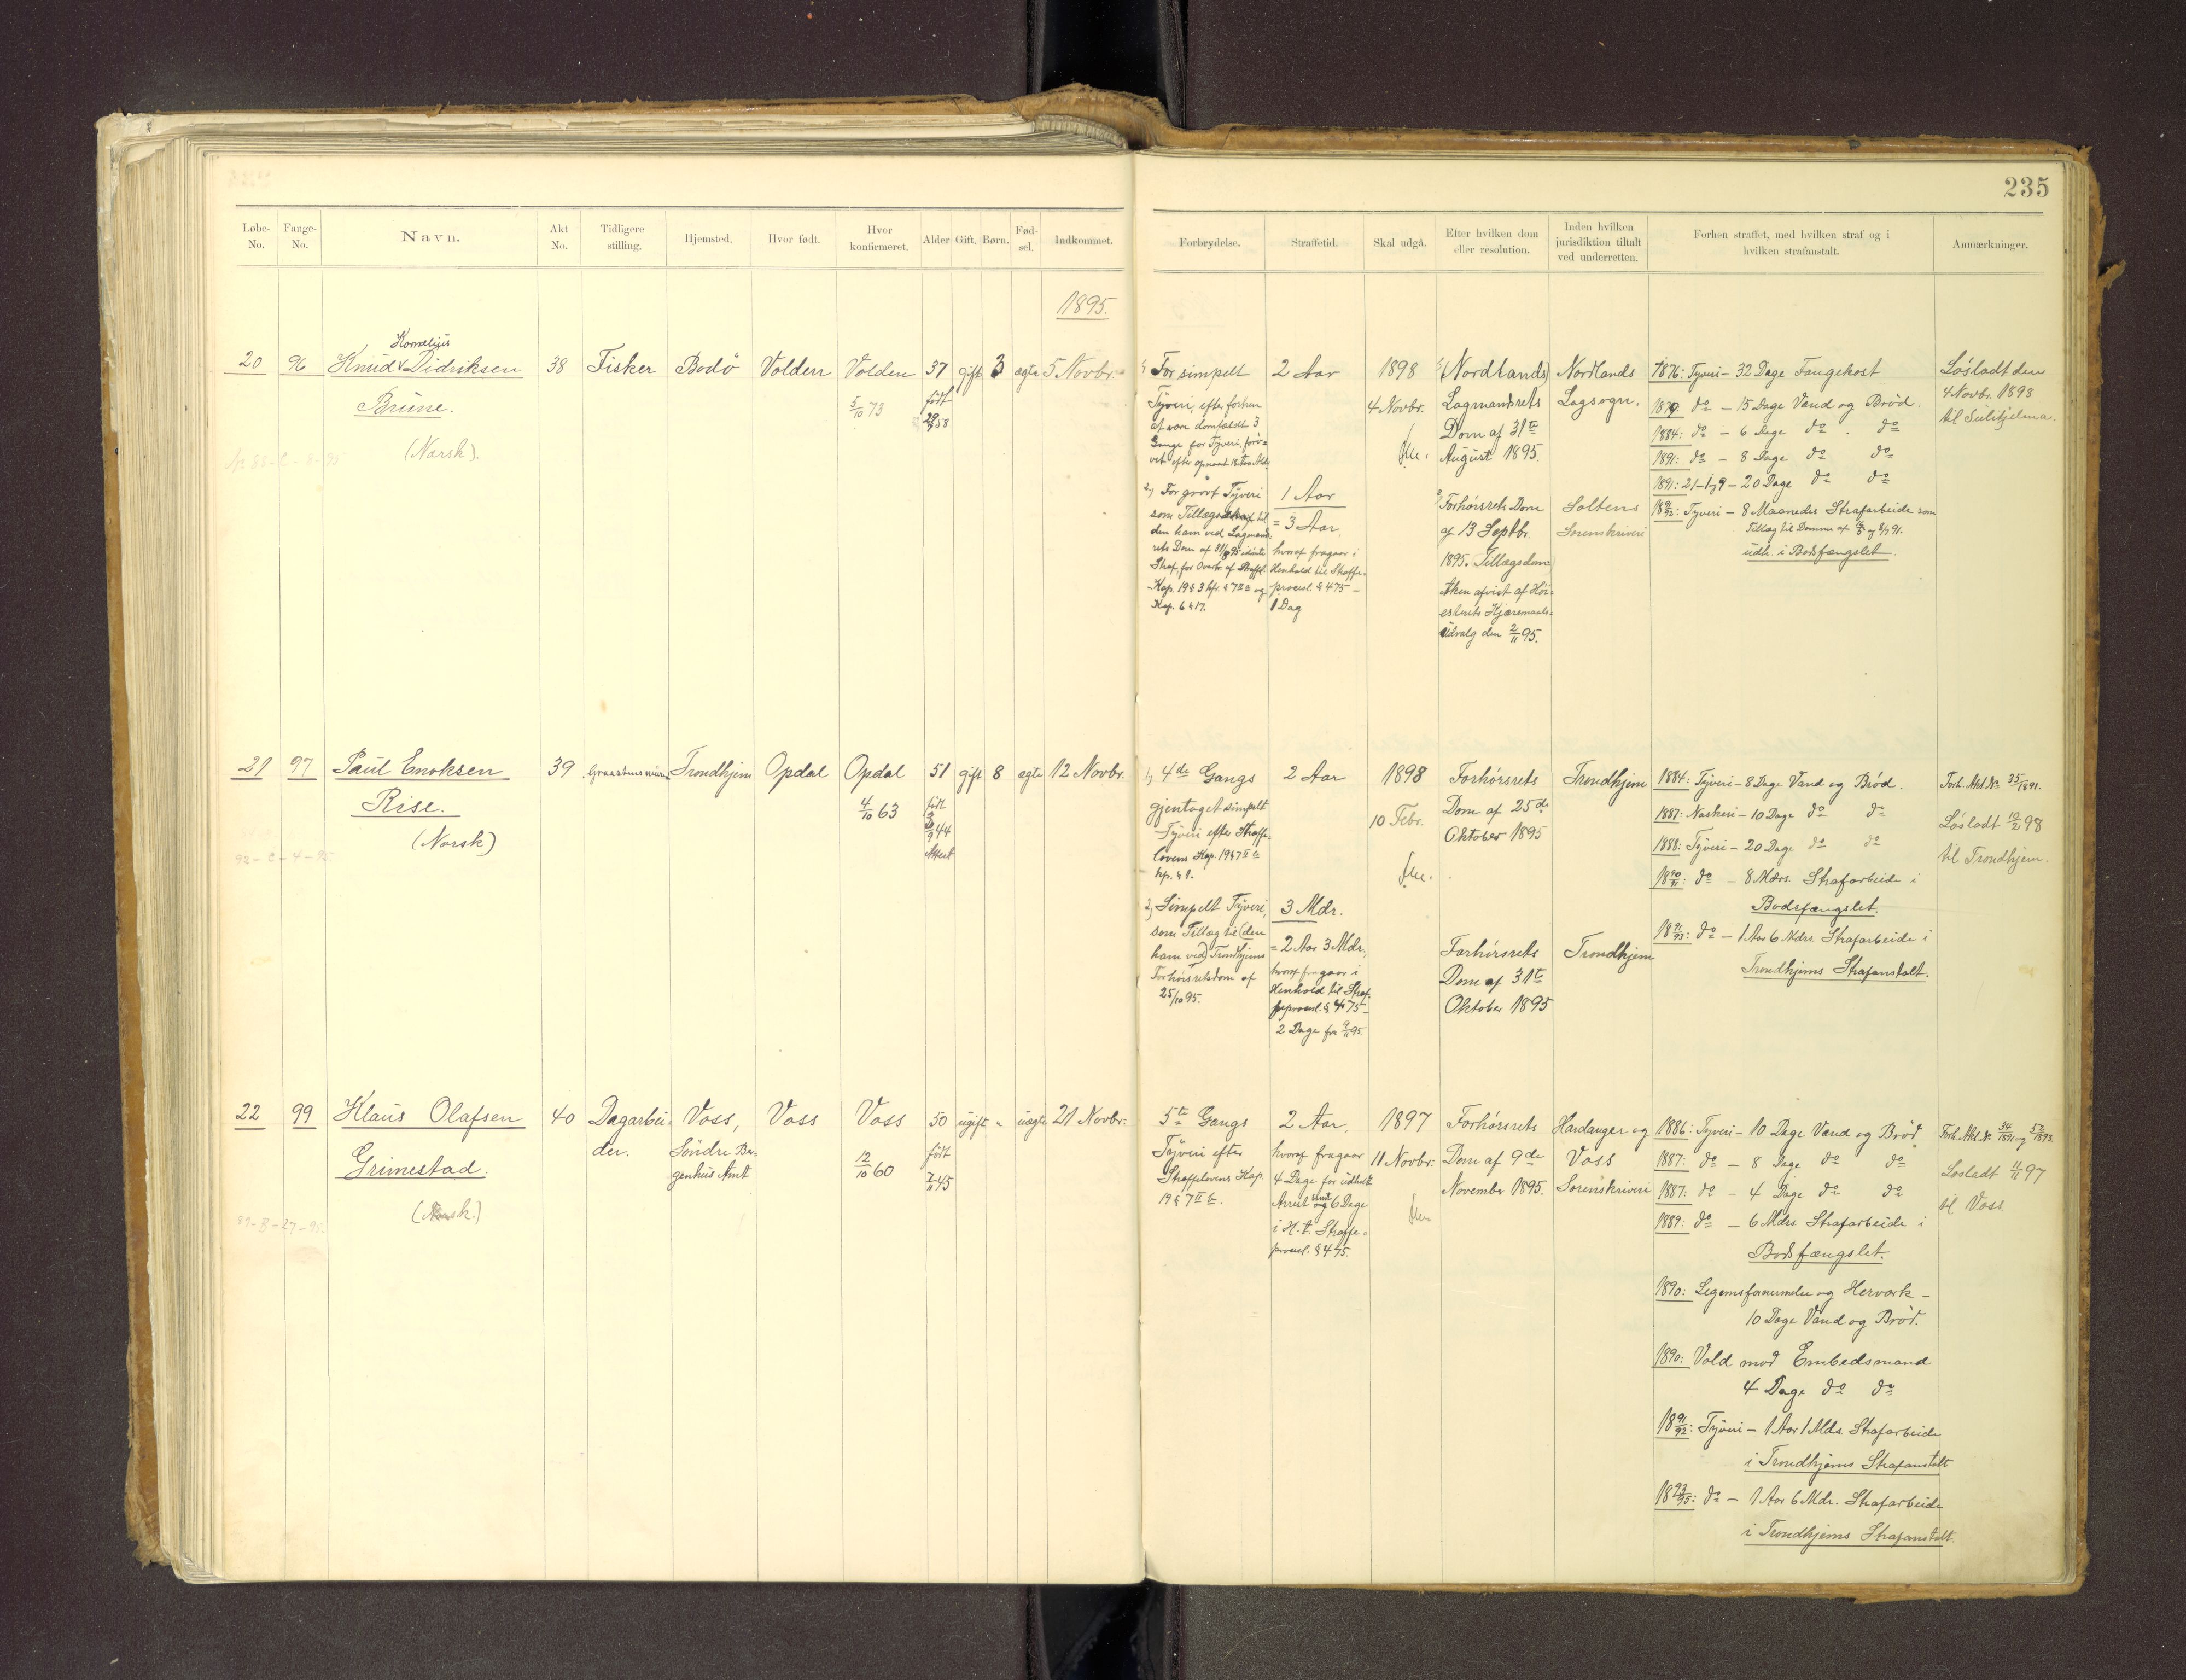 235
Løbe-No. Fange-No. Navn. Akt No. Tidligere stilling. Hjemsted. Hvor født. Hvor konfirmeret. Alder Gift. Børn. Fød-sel. Indkommet.
Forbrydelse. Straffetid. Skal udgå. Efter hvilken dom eller resolution. Inden hvilken jurisdiktion tiltalt ved underretten. Forhen straffet, med hvilken straf og i hvilken strafanstalt. Anmærkninger.
1895.
20 96
Kornelius
Knud Didriksen
Brune.
(Norsk).
38 Fisker Bodö Volden
Volden
5/10 73
37
født
gift 3 ægte 5 Novbr.
1) For simpelt
Tyveri, efter forhen
at være domfældt 3
Gange for Tyveri, forö=
vet efter opnaaet 18 Aars Alder
2) For grovt Tyveri
som Tillægsstraf til
den ham ved Lagmands
rets Dom af 31/8 95 idömte
Straf, for Overtr. af Straffel.
Kap. 19 § 3 og
Kap. 6 § 17.
2 Aar
1 Aar
= 3 Aar,
hvoraf fragaar i
Henhold til Straffe-
procesl. § 475 –
1 Dag
1898
4 Novbr.
1) Nordlands
Lagmandsrets
Dom af 31te
August 1895.
2) Forhörsrets Dom
af 13 Septbr.
1895. Tillægsdom
Anken afvist af Höi=
esterets Kjæremaals=
udvalg den 2/11 95.
Nordlands
Lagsogn.
Saltens
Sorenskriveri
1876: Tyveri – 32 Dage Fangekost
1879: do – 15 Dage Vand og Bröd.
1884: do – 6 Dage do do
1891: do – 8 Dage do do
1891: – 20 Dage do do
18 91/92: Tyveri – 8 Maaneders Strafarbeide som
Tillæg til Domme af
udh. i Bodsfængslet.
Lösladt den
4 Novbr. 1898
til Sulitjelma.
21 97
Paul Enoksen
Rise.
(Norsk)
39 Graastensmurer Trondhjem Opdal
Opdal
4/10 63
51
født
Attest
gift 8 ægte 12 Novbr.
1) 4de Gangs
gjentaget simpelt
Tyveri efter Straffe-
lovens Kap. 19 § 7
2) Simpelt Tyveri,
som Tillæg til (den
ham ved) Trondhjems
Forhörsretsdom af
25/10 95.
2 Aar
3 Mdr.
= 2 Aar 3 Mdr,
hvoraf fragaar i
Henhold til Straf-
feprocesl. § 475 –
2 Dage fra 9/11 95.
1898
10 Febr.
Forhörsrets
Dom af 25de
Oktober 1895
Forhörsrets
Dom af 31te
Oktober 1895
Trondhjem
Trondhjem
1884: Tyveri – 8 Dage Vand og Bröd.
1887: Naskeri – 10 Dage do do
1888: Tyveri – 20 Dage do do
18 90/91: do – 8 Mdrs. Strafarbeide i
Bodsfængslet.
18 91/93: do – 1 Aar 6 Mdrs. Strafarbeide i
Trondhjems Strafanstalt.
Forh. Akt. No 35/1891.
Lösladt 10/2 98
til Trondhjem.
22 99
Klaus Olafsen
Grimestad.
(Norsk.)
40
Dagarbei=
der.
Voss,
Söndre Ber-
genhus Amt
Voss
Voss
12/10 60
50
født
ugift " uægte 21 Novbr.
5te Gangs
Tyveri efter
Straffelovens Kap.
19 § 7
2 Aar,
hvoraf fragaar
4 Dage for udholdt
Arrest samt 6 Dage
i H. t. Straffe-
procesl. § 475.
1897
11 Novbr.
Forhörsrets
Dom af 9de
November 1895.
Hardanger og
Voss
Sorenskriveri
1886: Tyveri – 10 Dage Vand og Bröd
1887: do – 8 Dage do do
1887: do – 4 Dage do do
1889: do – 6 Mdrs. Strafarbeide i
Bodsfængslet.
1890: Legemsfornærmelse og Herværk –
10 Dage Vand og Bröd.
1890: Vold mod Embedsmand
4 Dage do do
18 91/92: Tyveri – 1 Aar 1 Mds. Strafarbeide
i Trondhjems Strafanstalt
18 93/95: do – 1 Aar 6 Mdr. Strafarbeide
i Trondhjems Strafanstalt.
Forh. Akt. No 34/1891 og 52/1893.
Lösladt 11/11 97
til Voss